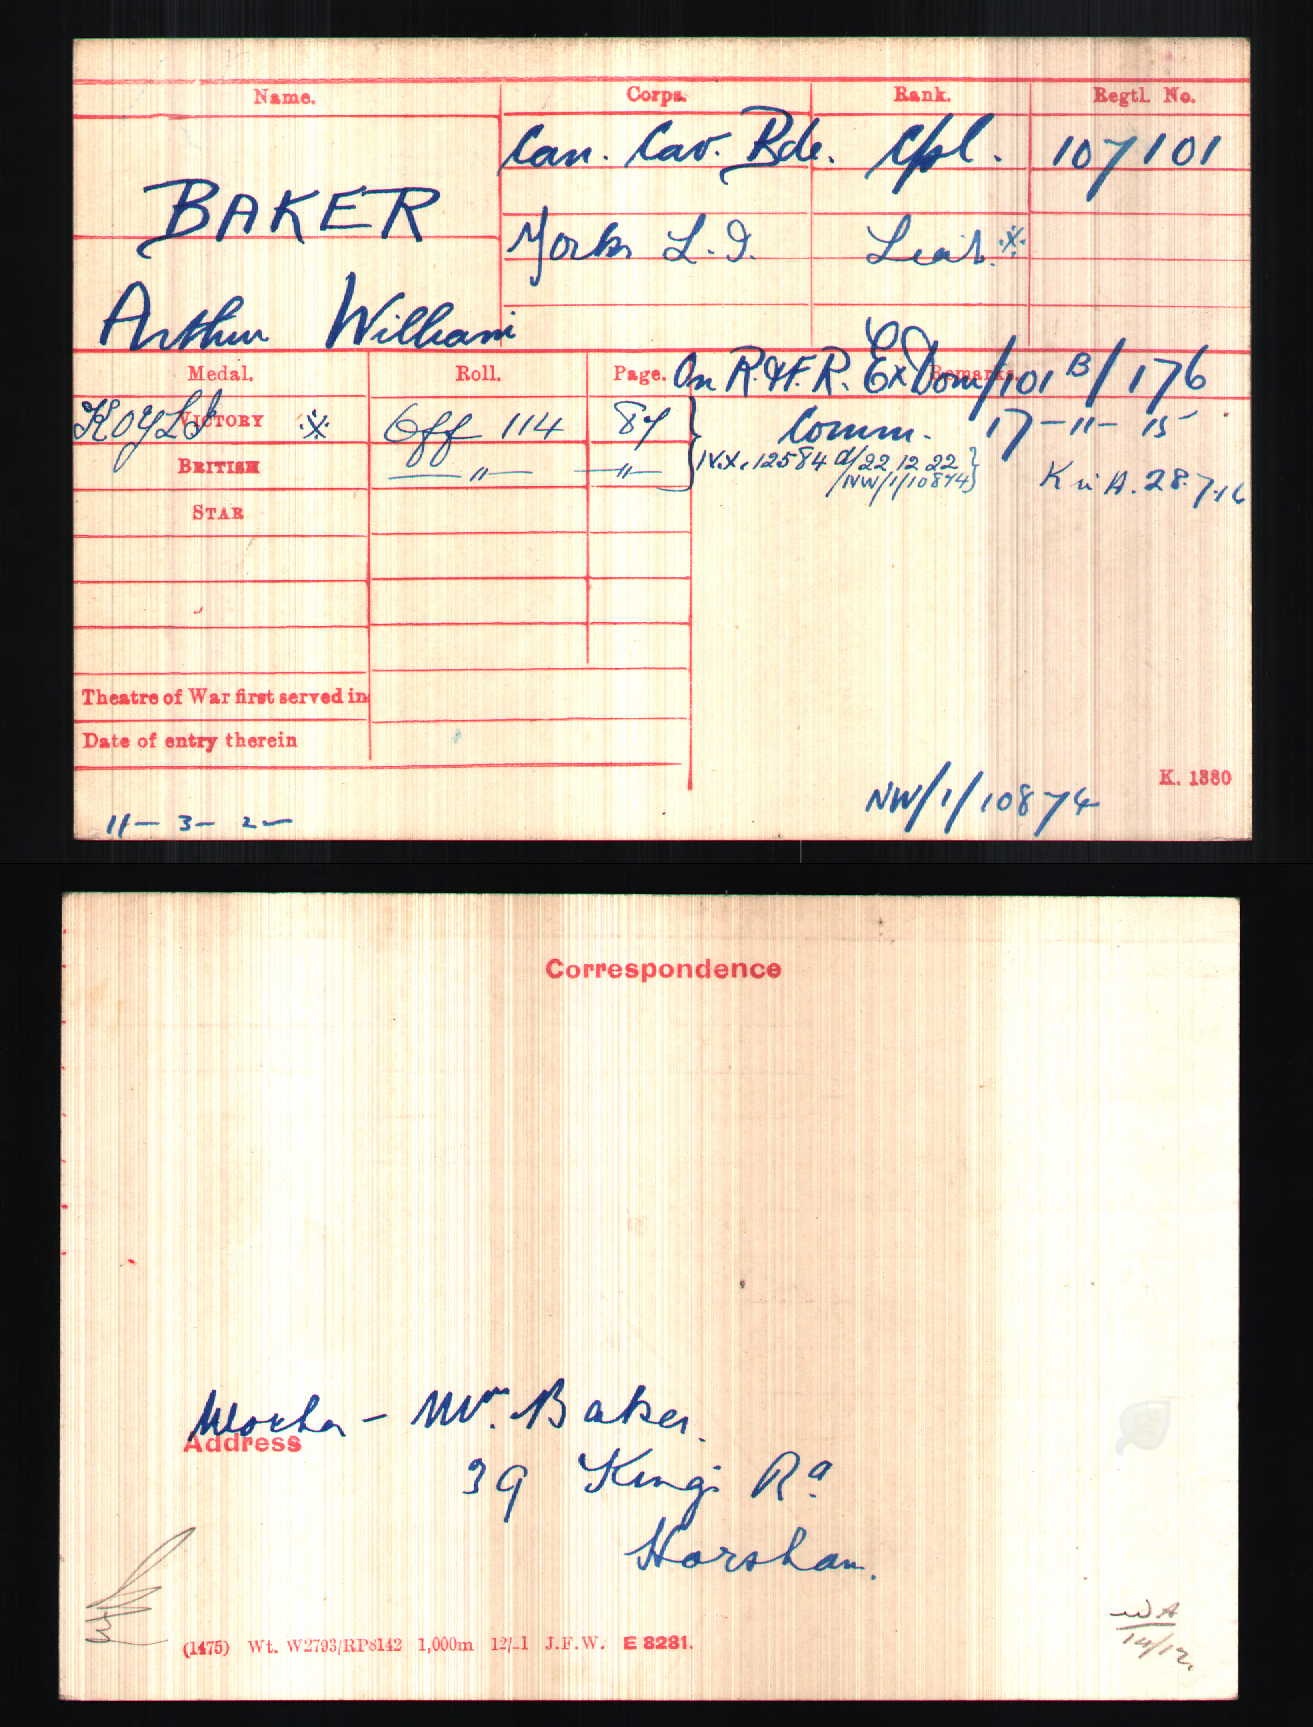 Name. Corps. Rank. Regtl. No.
Can. Cav. Bde. Cpl. 107101
BAKER
Yorks L.I. Lieut. ※
Arthur William
Medal. Roll. Page. Remarks.
On R. & F. R. Ex Dom/101 B/176
KOYLI
VICTORY ※ Off 114 87
Comm. 17-11-15
BRITISH —〃— —〃—
IV.X. 12584 d/22.12.22
NW/1/10874
K in A. 28.7.16
STAR
Theatre of War first served in
Date of entry therein
K. 1380
NW/1/10874
11-3-2-
Correspondence
Mother - Mrs. Baker.
Address
39 Kings Rd.
Horsham.
(1475) Wt. W2793/RP8142 1,000m 12/-1 J.F.W. E 8281.